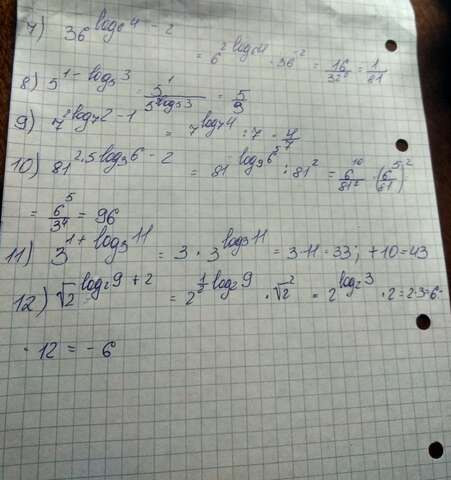 7) 36^(log₆4 - 2)
= 6^(2log₆4) · 36^(-2) = 16/32² = 1/81
8) 5^(1 - log₅3) = 5¹/5^(log₅3) = 5/3
9) 7^(2log₇2 - 1) = 7^(log₇4) : 7 = 4/7
10) 81^(2·5log₉6 - 2) = 81^(log₉6^(5)) : 81² = 6^(10)/81² = (6^(5)/81)²
= 6⁵/3⁴ = 96
11) 3^(1 + log₃11) = 3 · 3^(log₃11) = 3·11 = 33; +10 = 43
12) √2^(log₂9 + 2) = 2^(½log₂9) · √2² = 2^(log₂3) · 2 = 2·3 = 6-
- 12 = - 6